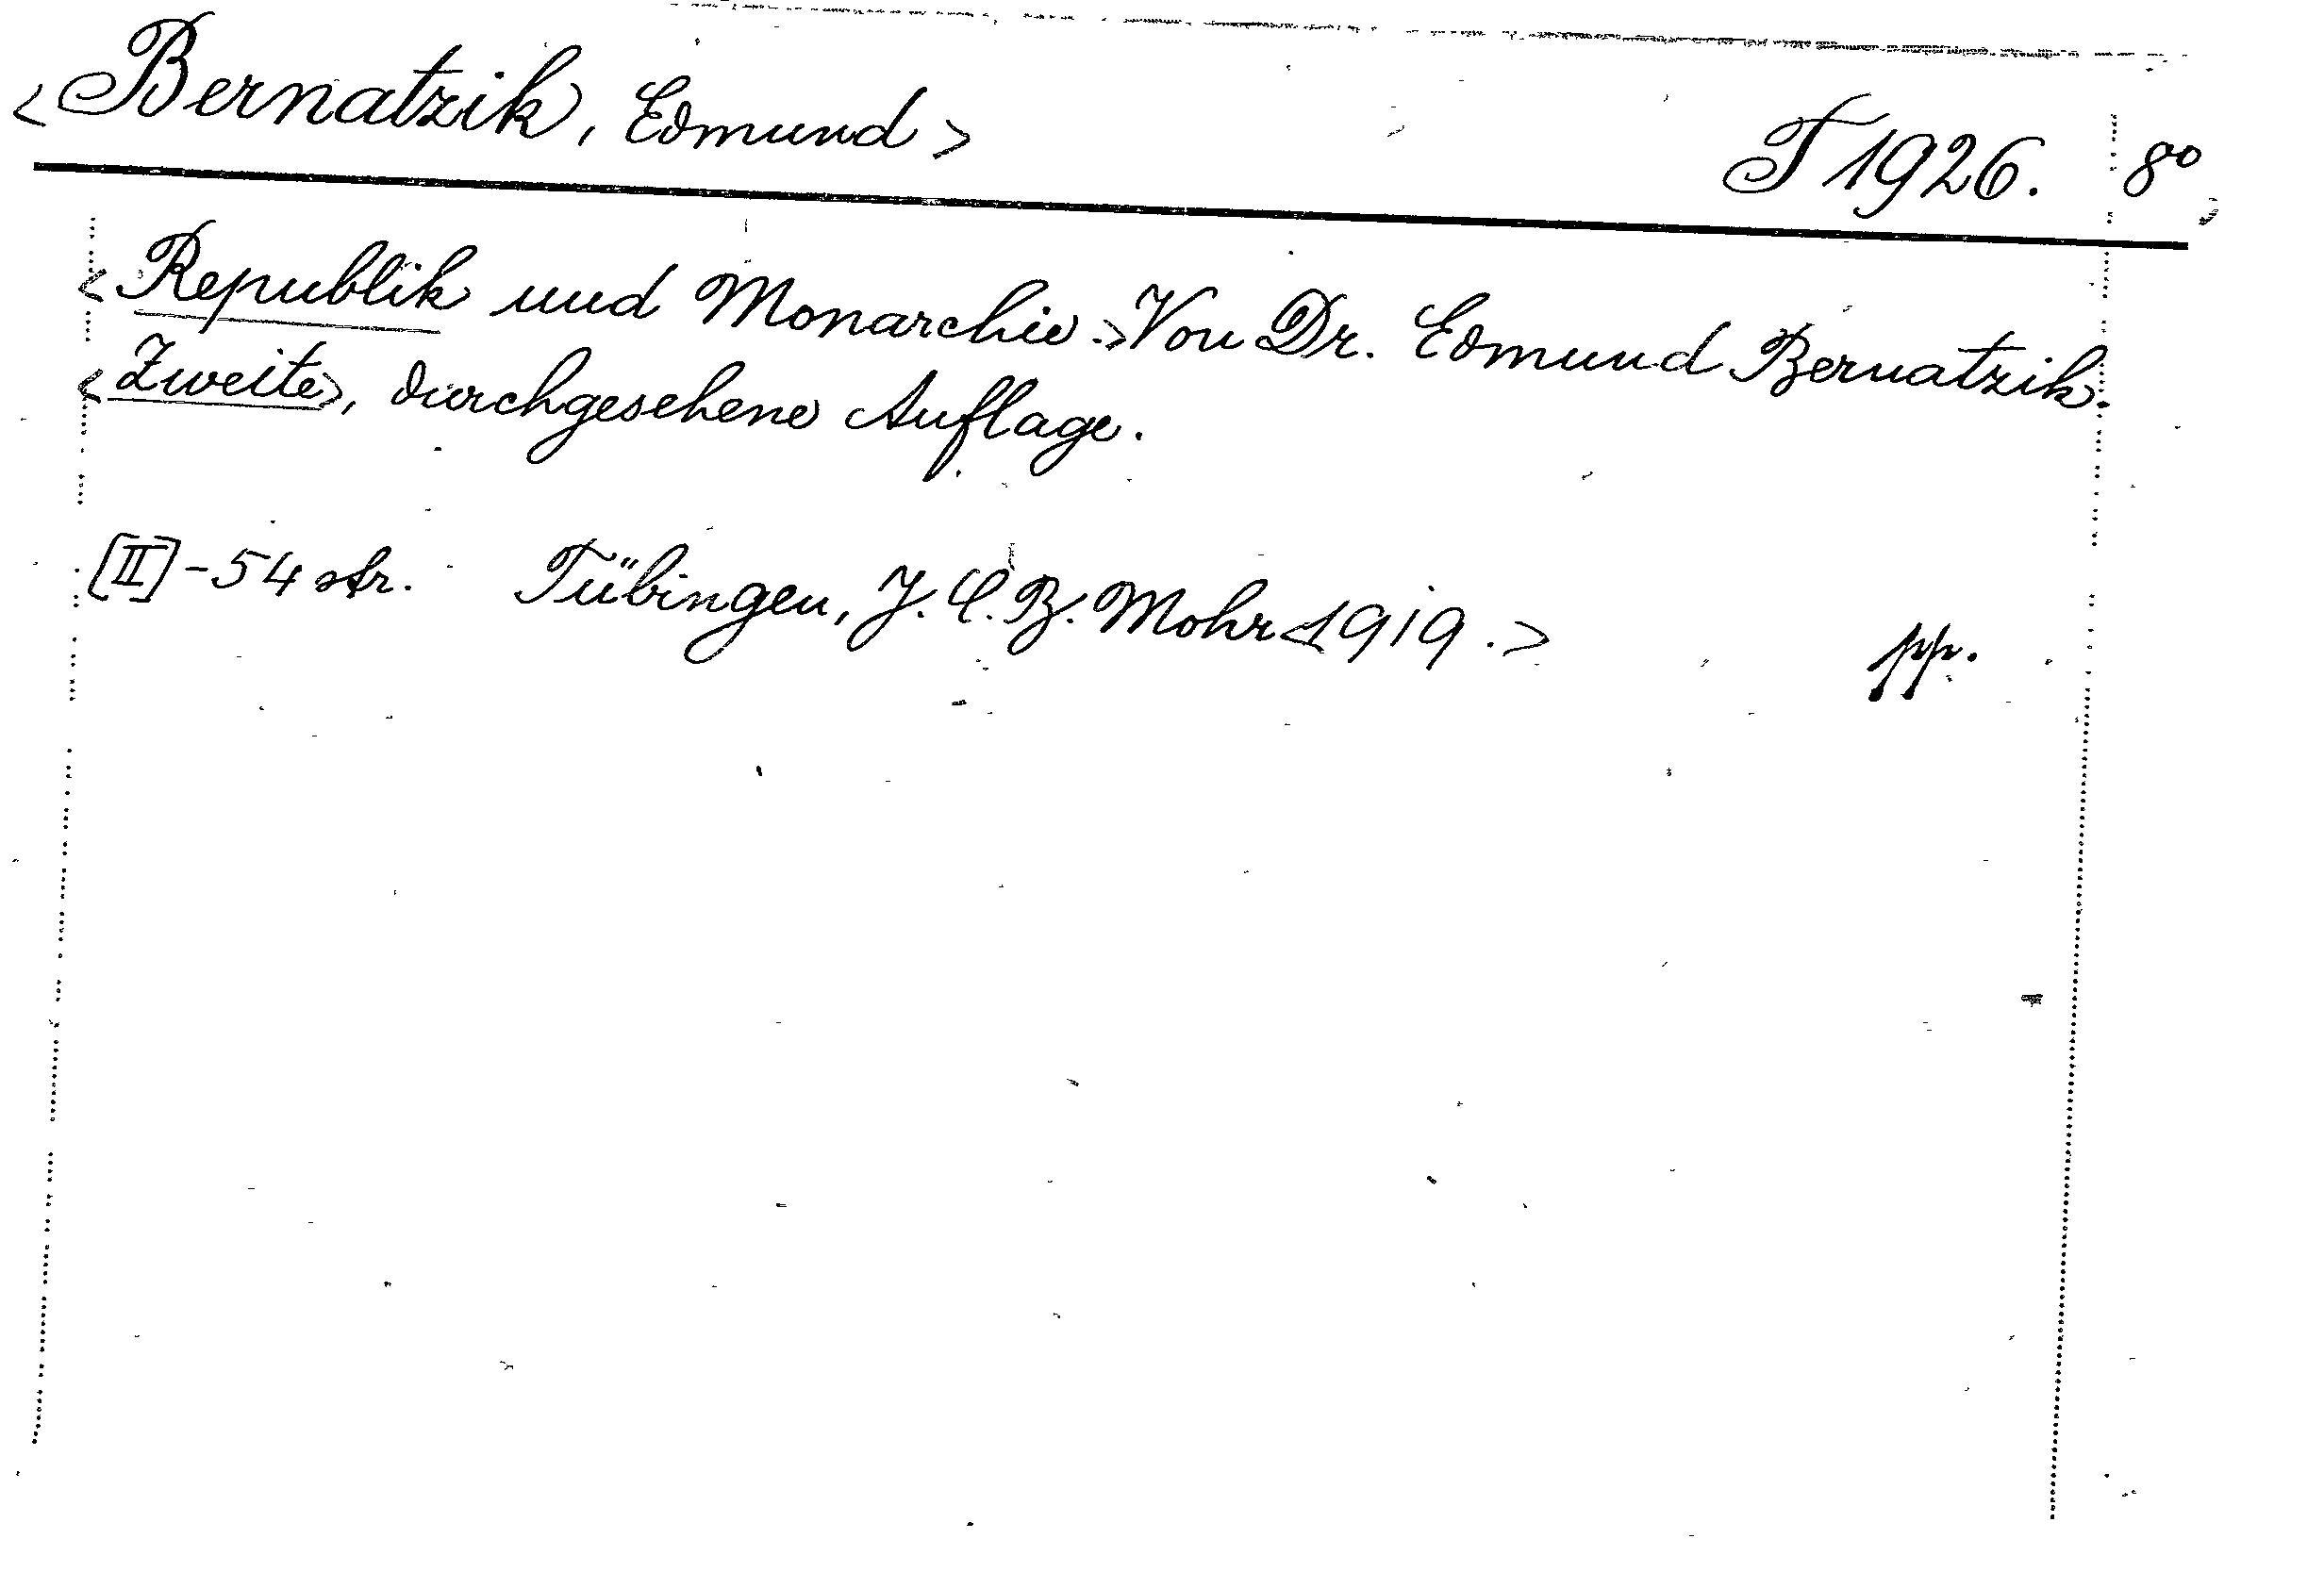 <Bernatzik, Edmund>
T 1926. 8º
<Republik und Monarchie.> Von Dr. Edmund Bernatzik.
<Zweite>, durchgesehene Auflage.
[II]-54 str. Tübingen, J. C. B. Mohr <1919.>
pp.